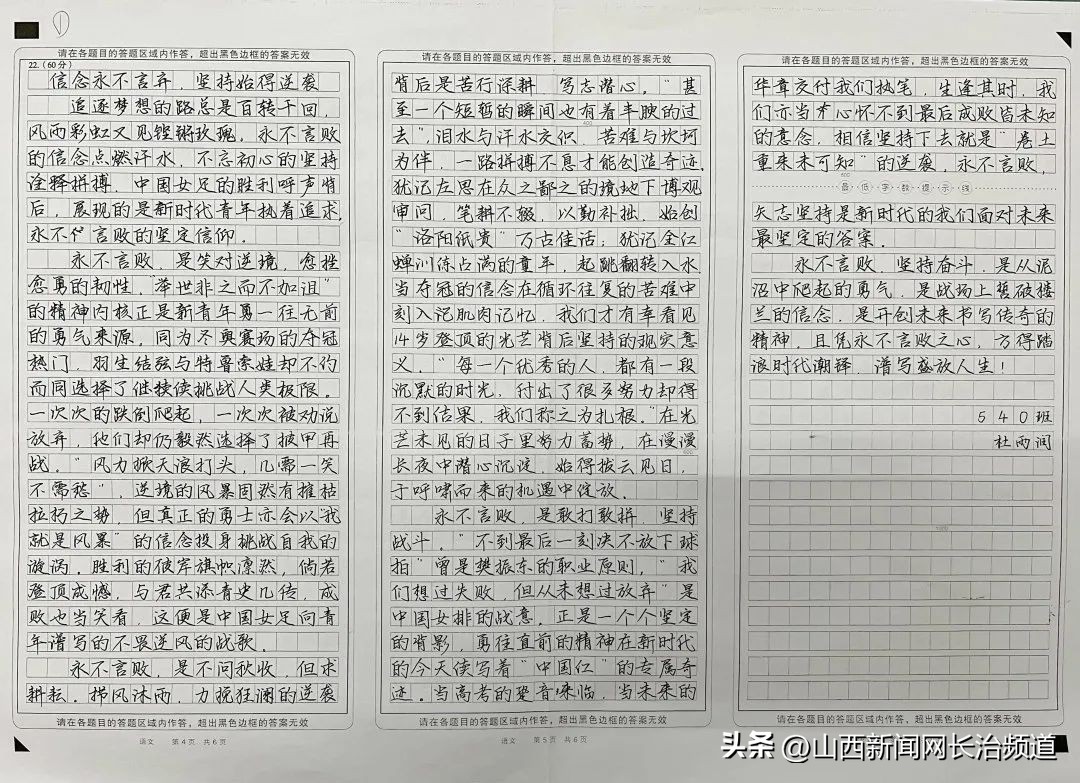 请在各题目的答题区域内作答，超出黑色边框的答案无效
22.（60分）
信念永不言弃，坚持始得逆袭
追逐梦想的路总是百转千回，
风雨彩虹又见铿锵玫瑰。永不言败
的信念点燃汗水，不忘初心的坚持
诠释拼搏。中国女足的胜利呼声背
后，展现的是新时代青年执着追求，
永不言败的坚定信仰。
永不言败，是笑对逆境，愈挫
愈勇的韧性。"举世非之而不加沮"
的精神内核正是新青年勇一往无前
的勇气来源。同为冬奥赛场的夺冠
热门，羽生结弦与特鲁索娃却不约
而同选择了继续挑战人类极限。
一次次的跌倒爬起，一次次被劝说
放弃，他们却仍毅然选择了披甲再
战。"风力掀天浪打头，只需一笑
不需愁"，逆境的风暴固然有摧枯
拉朽之势，但真正的勇士亦会以"我
就是风暴"的信念投身挑战自我的
漩涡。胜利的彼岸旗帜凛然，倘若
登顶成憾，与君共添青史几传，成
败也当笑看，这便是中国女足向青
年谱写的不畏逆风的战歌。
永不言败，是不问秋收，但求
耕耘。栉风沐雨，力挽狂澜的逆袭
请在各题目的答题区域内作答，超出黑色边框的答案无效
语文 第4页 共6页
请在各题目的答题区域内作答，超出黑色边框的答案无效
背后是苦行深耕，写志潜心。"甚
至一个短暂的瞬间也有着丰腴的过
去"，泪水与汗水交织，苦难与坎坷
400
为伴，一路拼搏不息才能创造奇迹。
犹记左思在众之鄙之的境地下博观
审问，笔耕不辍，以勤补拙，始创
"洛阳纸贵"万古佳话，犹记全红
婵训练占满的童年，起跳翻转入水
当夺冠的信念在循环往复的苦难中
刻入记肌肉记忆，我们才有幸看见
14岁登顶的光芒背后坚持的现实意
义。"每一个优秀的人，都有一段
沉默的时光，付出了很多努力却得
不到结果，我们称之为扎根。"在光
芒未见的日子里努力蓄势，在漫漫
600
长夜中潜心沉淀，始得拨云见日，
于呼啸而来的机遇中绽放。
永不言败，是敢打敢拼，坚持
战斗。"不到最后一刻决不放下球
拍"曾是樊振东的职业原则，"我
们想过失败，但从未想过放弃"是
中国女排的战意。正是一个个坚定
的背影，勇往直前的精神在新时代
的今天续写着"中国红"的专属奇
迹。与高考的跫音来临，当未来的
请在各题目的答题区域内作答，超出黑色边框的答案无效
语文 第5页 共6页
请在各题目的答题区域内作答，超出黑色边框的答案无效
华章交付我们执笔，生逢其时，我
们亦当心怀不到最后成败皆未知
的意念，相信坚持下去就是"卷土
重来未可知"的逆袭，永不言败，
800
最低字数提示线
矢志坚持是新时代的我们面对未来
最坚定的答案。
永不言败，坚持奋斗，是从泥
沼中爬起的勇气，是战场上誓破楼
兰的信念，是开创未来书写传奇的
精神，且凭永不言败之心，方得踏
浪时代潮驿，谱写盛放人生！
540班
杜雨润
1000
请在各题目的答题区域内作答，超出黑色边框的答案无效
头条 @山西新闻网长治频道